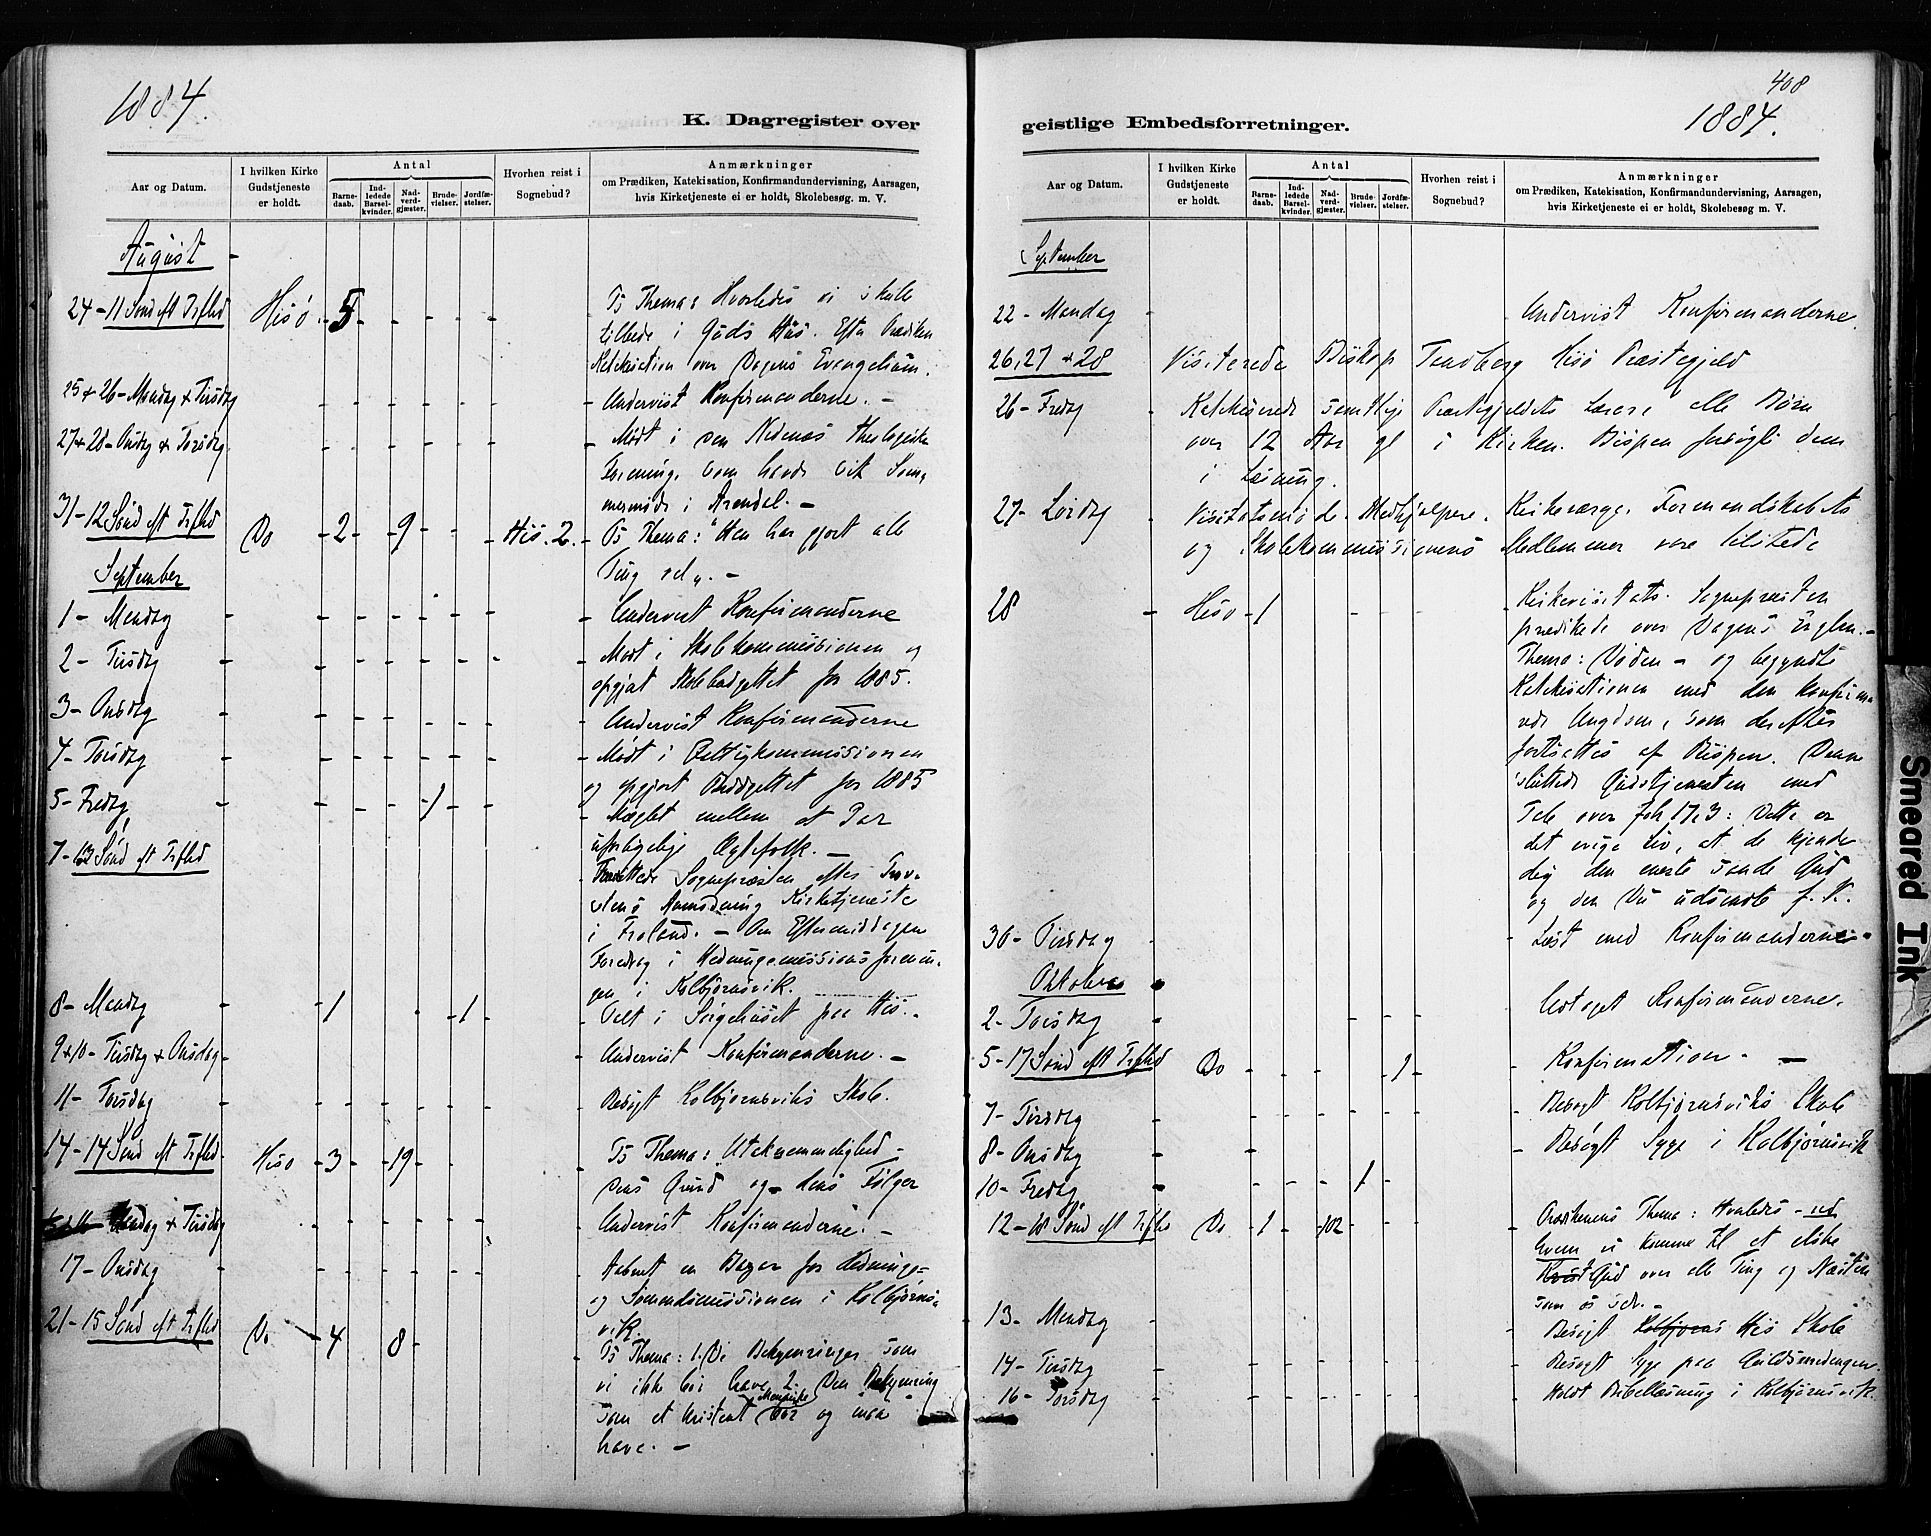 1884.
K. Dagregister over
Aar og Datum.
I hvilken Kirke Gudstjeneste er holdt.
Antal
Barnedaab.
Indledede Barselkvinder.
Nadverdgjæster.
Brudevielser.
Jordfæstelser.
Hvorhen reist i Sognebud?
Anmærkninger
om Prædiken, Katekisation, Konfirmandundervisning, Aarsagen,
hvis Kirketjeneste ei er holdt, Skolebesøg m. V.
August
24 - 11 Sønd eft Trftd Hisø 5 Ts Thema: Hvorledes vi skulle
tilbede i Guds Hus. Efter Prædiken
Katekisation over Dagens Evangelium.
25 + 26 - Mandag + Tirsdag Undervist Konfirmanderne. -
27 + 28 - Onsdag + Torsdag Mødt i den Nedenæs theologiske
Forening, som havde sit Som-
mermøde i Arendal. -
31 - 12 Sønd eft Trftd Do 2 9 Hisø. 2. Ts Thema: "Han har gjort alle
Ting vel". -
September
1 - Mandag Undervist Konfirmanderne
2 - Tirsdag Mødt i Skolekommissionen og
opgjort Skolebudgettet for 1885.
3 - Onsdag Undervist Konfirmanderne
4 - Torsdag Mødt i Fattigkommissionen
og opgjort Budgettet for 1885
5 - Fredag 1 Mæglet mellem et Par
uforligelige Ægtefolk. -
7 - 13 Sønd eft Trftd Forrettede Sognepræsten efter Prov-
stens Anmodning Kirketjeneste
i Froland. - Om Eftermiddagen
Foredrag i Hedningemissionsforenin-
gen i Kolbjørnsvik.
8 - Mandag 1 1 Talt i Sørgehuset paa Hisø.
9 + 10 - Tirsdag + Onsdag Undervist Konfirmanderne. -
11 - Torsdag Besøgt Kolbjørnsviks Skole.
14 - 14 Sønd eft Trftd Hisø 3 19 Ts Thema: Utaknemmelighed -
dens Grund og dens Følger
Mandag + Tirsdag Undervist Konfirmanderne. -
17 - Onsdag Aabnet en Bazar for Hednings-
og Sømandsmissionen i Kolbjørns-
vik.
21 - 15 Sønd eft Trftd Do 4 8 Ts Thema: 1. De Bekymringer som
vi ikke bør have 2. Den Bekymring
som et kristent Menneske bør og maa
have. -
408
1884.
geistlige Embedsforretninger.
Aar og Datum.
I hvilken Kirke Gudstjeneste er holdt.
Antal
Barnedaab.
Indledede Barselkvinder.
Nadverdgjæster.
Brudevielser.
Jordfæstelser.
Hvorhen reist i Sognebud?
Anmærkninger
om Prædiken, Katekisation, Konfirmandundervisning, Aarsagen,
hvis Kirketjeneste ei er holdt, Skolebesøg m. V.
September
22 - Mandag Undervist Konfirmanderne.
26, 27 + 28 Visiterede Biskop Tandberg Hisø Præstegjeld
26 - Fredag Katekiserede samtlige Præstegjeldets Lærere alle Børn
over 12 Aar gl i Kirken. Bispen forsøgte dem
i Læsning.
27 - Lørdag Visitatsmøde. Medhjælpere. Kirkeværge, Formandskabets
og Skolekommissionens Medlemmer vare tilstede
28 Hisø 1 Kirkevisitats. Sognepræsten
prædikede over Dagens Evglm. -
Thema: Døden - og begyndte
Katekisationen med den konfirme-
rede Ungdom, som derefter
fortsattes af Bispen. Denne
sluttede Gudstjenesten med
Tale over Joh 17,3: Dette er
det evige Liv, at de kjende
dig den eneste sande Gud
og den Du udsendte J. K.
30 - Tirsdag Læst med Konfirmanderne.
Oktober
2 - Torsdag Udtaget Konfirmanderne.
5 - 17 Sønd eft Trftd Do 1 Konfirmation. -
7 - Tirsdag Besøgt Kolbjørnsviks Skole
8 - Onsdag Besøgt Syge i Kolbjørnsvik
10 - Fredag 1
12 - 18 Sønd eft Trftd Do 1 102 Prædikenens Thema: Hvorledes - ved
hvem vi komme til at elske
Gud over alle Ting og Næsten
som os selv. -
13 - Mandag Besøgt Kolbjørns Hisø Skole
14 - Tirsdag Besøgt Syge paa Guldsmedengen.
16 - Torsdag Holdt Bibellæsning i Kolbjørnsvik.
Smeared Ink